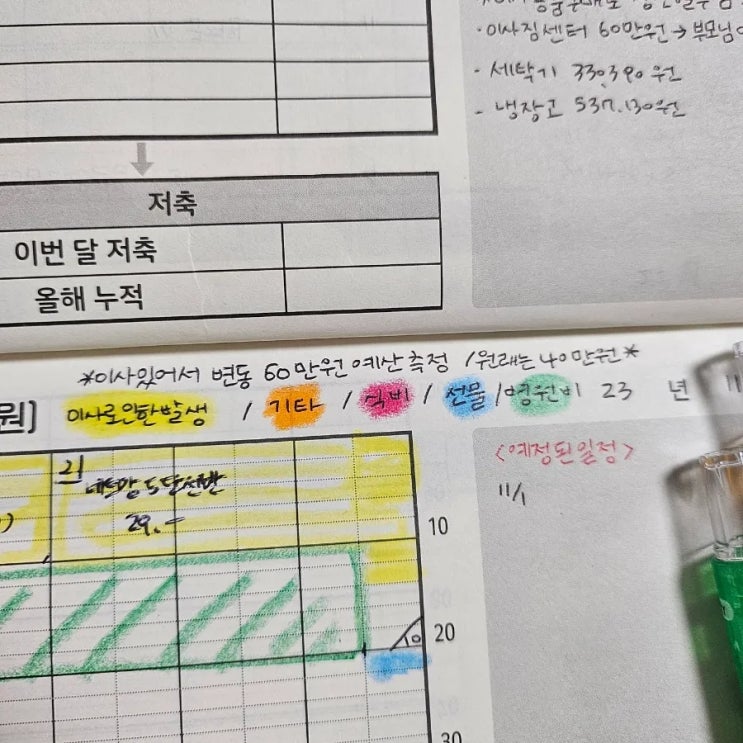 · 이사짐센터 60만원 → 부모님
- 세탁기 330,390원
- 냉장고 537.130원
저축
이번 달 저축
올해 누적
*이사있어서 변동 60만원 예산 측정 / 원래는 40만원*
원] 이사로인한발생 / 기타 / 식비 / 선물 / 병원비 23 년 11
<예정된일정>
21
11/1
29.-
10
20
30